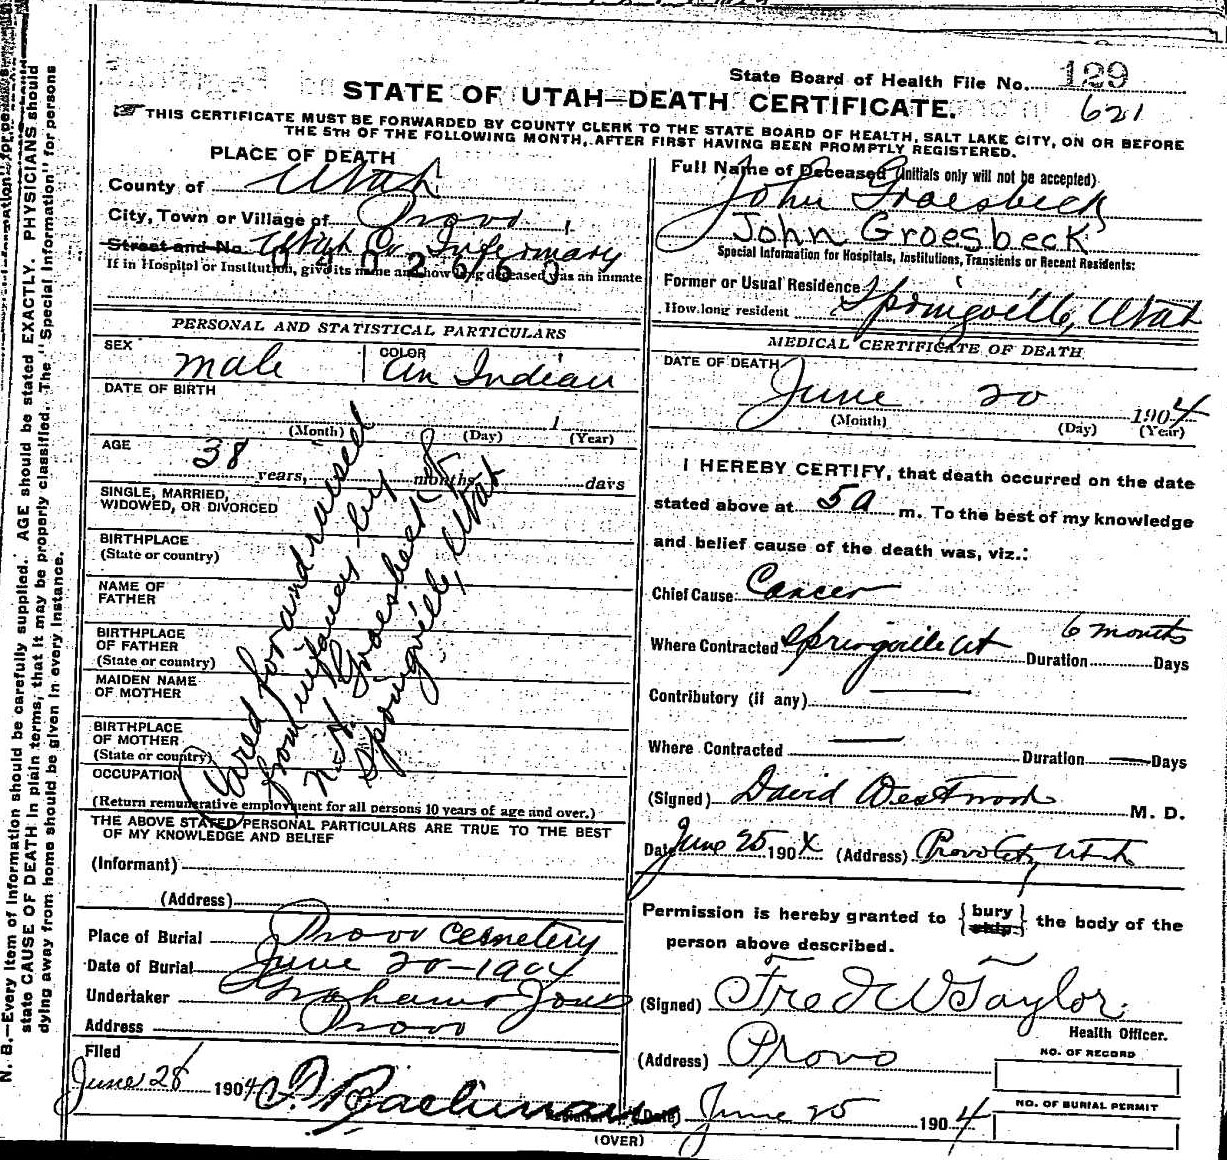 State Board of Health File No. 129
621
STATE OF UTAH—DEATH CERTIFICATE.
THIS CERTIFICATE MUST BE FORWARDED BY COUNTY CLERK TO THE STATE BOARD OF HEALTH, SALT LAKE CITY, ON OR BEFORE
THE 5TH OF THE FOLLOWING MONTH, AFTER FIRST HAVING BEEN PROMPTLY REGISTERED.
PLACE OF DEATH
County of Utah
City, Town or Village of Provo
Street and No. Utah Co. Infermary
If in Hospital or Institution, give its name and how long deceased was an inmate
PERSONAL AND STATISTICAL PARTICULARS
SEX male
COLOR An Indian
DATE OF BIRTH
(Month) (Day) 1 (Year)
AGE 38 years, months, days
SINGLE, MARRIED,
WIDOWED, OR DIVORCED
BIRTHPLACE
(State or country)
NAME OF
FATHER
BIRTHPLACE
OF FATHER
(State or country)
MAIDEN NAME
OF MOTHER
BIRTHPLACE
OF MOTHER
(State or country)
OCCUPATION
(Return remunerative employment for all persons 10 years of age and over.)
Cared for and raised
from infancy by
N. H. Groesbeck of
Springville, Utah
THE ABOVE STATED PERSONAL PARTICULARS ARE TRUE TO THE BEST
OF MY KNOWLEDGE AND BELIEF
(Informant)
(Address)
Place of Burial Provo Cemetery
Date of Burial June 20-1904
Undertaker Graham Jones
Address Provo
Filed
June 28 1904
(OVER)
Full Name of Deceased (Initials only will not be accepted)
John Groesbeck
John Groesbeck
Special Information for Hospitals, Institutions, Transients or Recent Residents:
Former or Usual Residence
How long resident Springville, Utah
MEDICAL CERTIFICATE OF DEATH
DATE OF DEATH
June 20 1904
(Month) (Day) (Year)
I HEREBY CERTIFY, that death occurred on the date
stated above at 5 a m. To the best of my knowledge
and belief cause of the death was, viz.:
Chief Cause: Cancer
Where Contracted Springville Ut Duration 6 months Days
Contributory (if any) —
Where Contracted — Duration — Days
(Signed) David Westwood M. D.
Date June 25 1904 (Address) Provo City Utah
Permission is hereby granted to { bury ship } the body of the
person above described.
(Signed) Fred W Taylor
Health Officer.
(Address) Provo
NO. OF RECORD
NO. OF BURIAL PERMIT
(Date) June 25 1904
N. B.—Every item of information should be carefully supplied. AGE should be stated EXACTLY. PHYSICIANS should
state CAUSE OF DEATH in plain terms, that it may be properly classified. The "Special Information" for persons
dying away from home should be given in every instance.